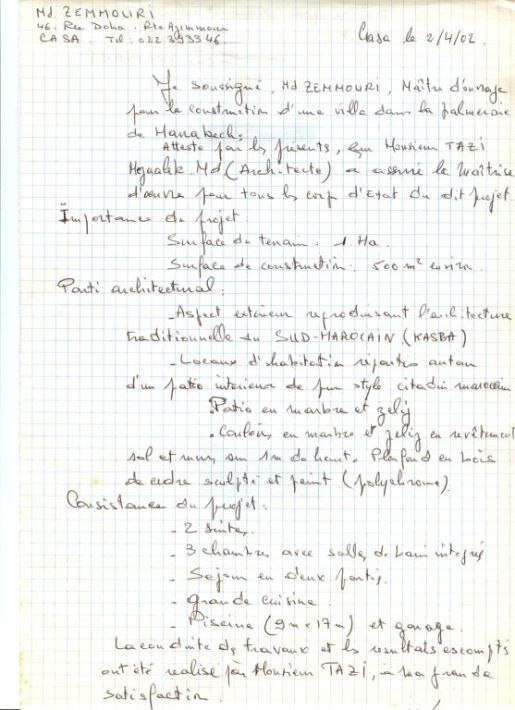 Md ZEMMOURI
46. Rue Doha. Rte Azemmour
CASA. Tel: 022 393346.
Casa le 2/4/02.
Je soussigné, Md ZEMMOURI, Maître d'ouvrage
pour la construction d'une villa dans la palmeraie
de Marrakech:
Atteste par les présents, que Monsieur TAZI
Md (Architecte) a assuré la Maîtrise
d'œuvre pour tous les corps d'Etat du dit projet.
Importance du projet
Surface du terrain: 1 Ha.
Surface de construction: 500 m² environ
Parti architectural:
- Aspect extérieur reproduisant l'architecture
traditionnelle du SUD-MAROCAIN (KASBA)
- Locaux d'habitation répartis autour
d'un patio intérieur de pur style citadin marocain
. Patio en marbre et zelij
. Couloirs en marbre et zelij en revêtement
sol et murs sur 1m de haut. Plafond en bois
de cèdre sculpté et peint (polychrome).
Consistance du projet:
- 2 suites.
- 3 chambres avec salles de bain intégrés
- Sejour en deux partis.
- Grande cuisine.
- Piscine (9m x 17m) et garage.
La conduite des travaux et les resultats escomptés
ont été realisé par Monsieur TAZI, a ma grande
satisfaction.